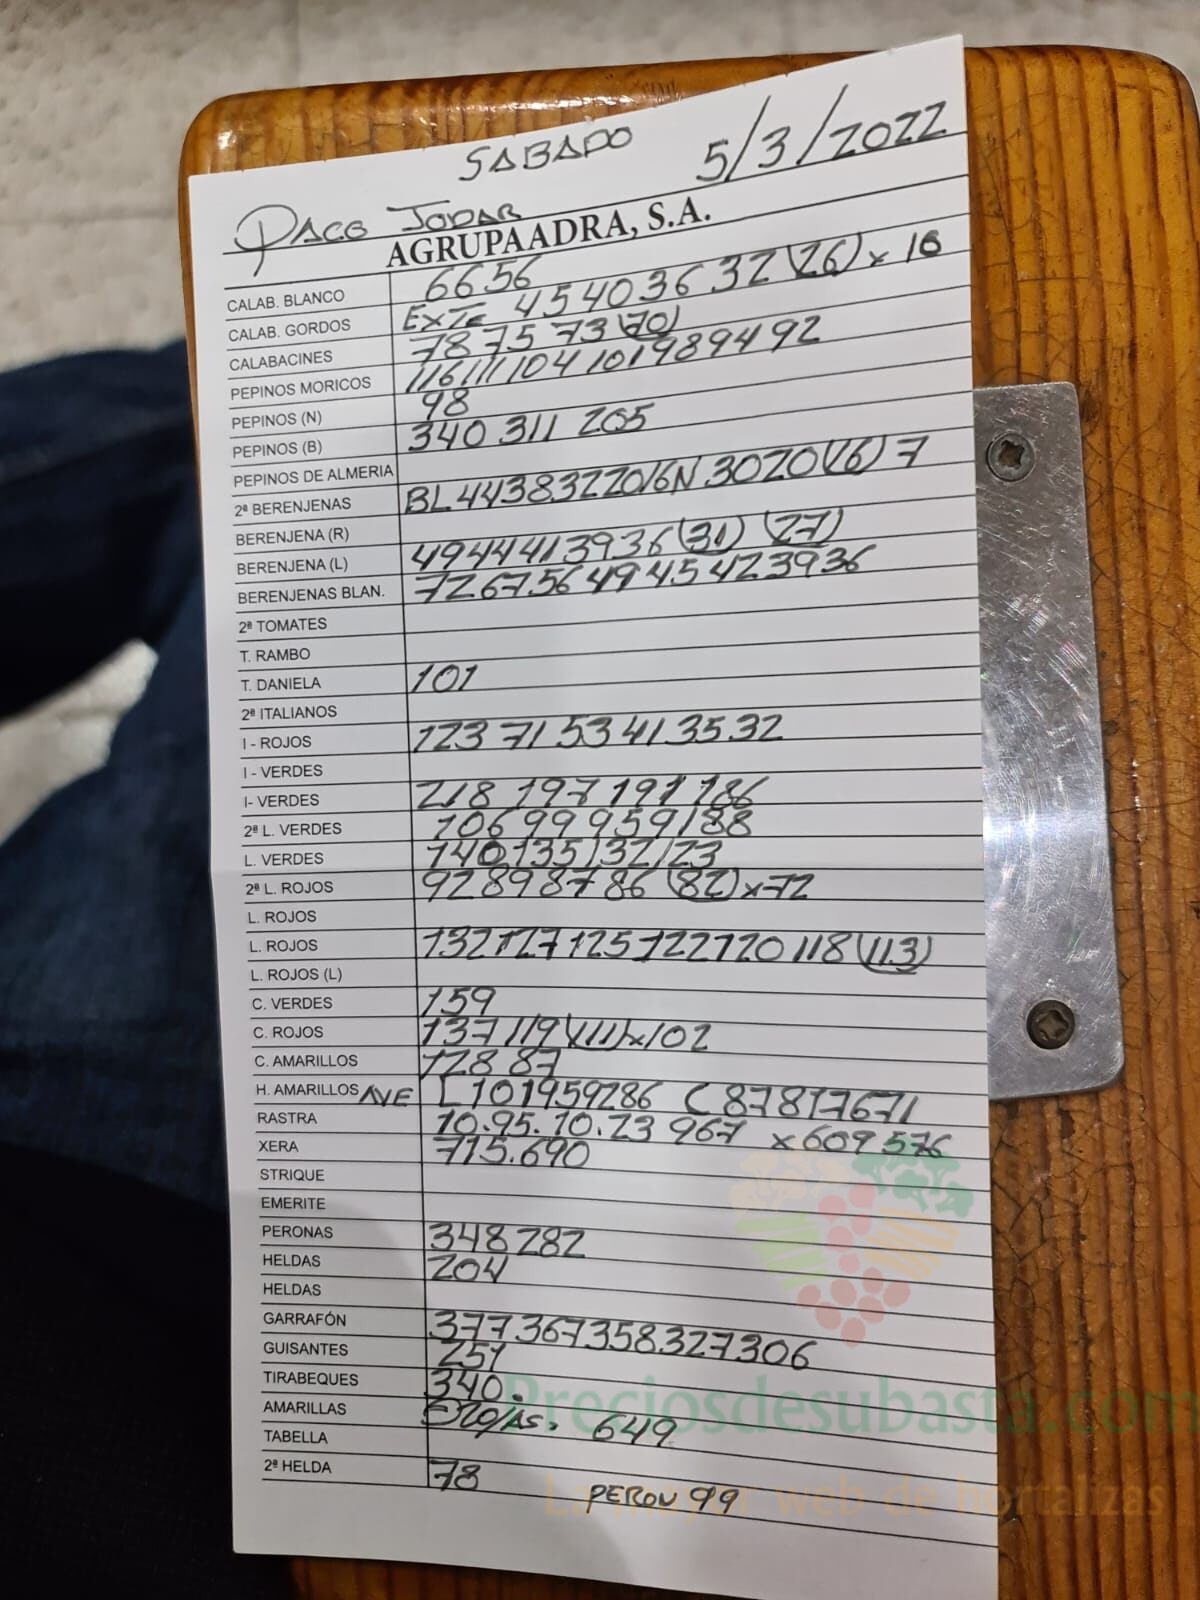 SABADO 5/3/2022
PACO JODAR
AGRUPAADRA, S.A.
CALAB. BLANCO 6656
CALAB. GORDOS EXTE 45 40 36 32 (26) x 16
CALABACINES 78 75 73 (70)
PEPINOS MORICOS 116 111 104 101 98 94 92
PEPINOS (N) 98
PEPINOS (B) 340 311 205
PEPINOS DE ALMERIA
2ª BERENJENAS BL 44 38 32 20 16 N 30 20 (16) 7
BERENJENA (R)
BERENJENA (L) 49 44 41 39 36 (31) (27)
BERENJENAS BLAN. 72 67 56 49 45 42 39 36
2ª TOMATES
T. RAMBO
T. DANIELA 101
2ª ITALIANOS
I - ROJOS 123 71 53 41 35.32
I - VERDES
I- VERDES 218 197 191 186
2ª L. VERDES 106 99 95 91 88
L. VERDES 140 135 132 123
2ª L. ROJOS 92 89 87 86 (82) x 72
L. ROJOS
L. ROJOS 132 127 125 122 120 118 (113)
L. ROJOS (L)
C. VERDES 159
C. ROJOS 137 119 (111) x 102
C. AMARILLOS 128 87
H. AMARILLOS AVE L 101 95 92 86 C 87 81 76 71
RASTRA 10.95. 10.23 967 x 609 576
XERA 715.690
STRIQUE
EMERITE
PERONAS 348 282
HELDAS 204
HELDAS
GARRAFÓN 377 367 358.327 306
GUISANTES 251
TIRABEQUES 340.
AMARILLAS 649
TABELLA
2ª HELDA 78 PERON 99
Preciosdesubasta.com
La mayor web de hortalizas